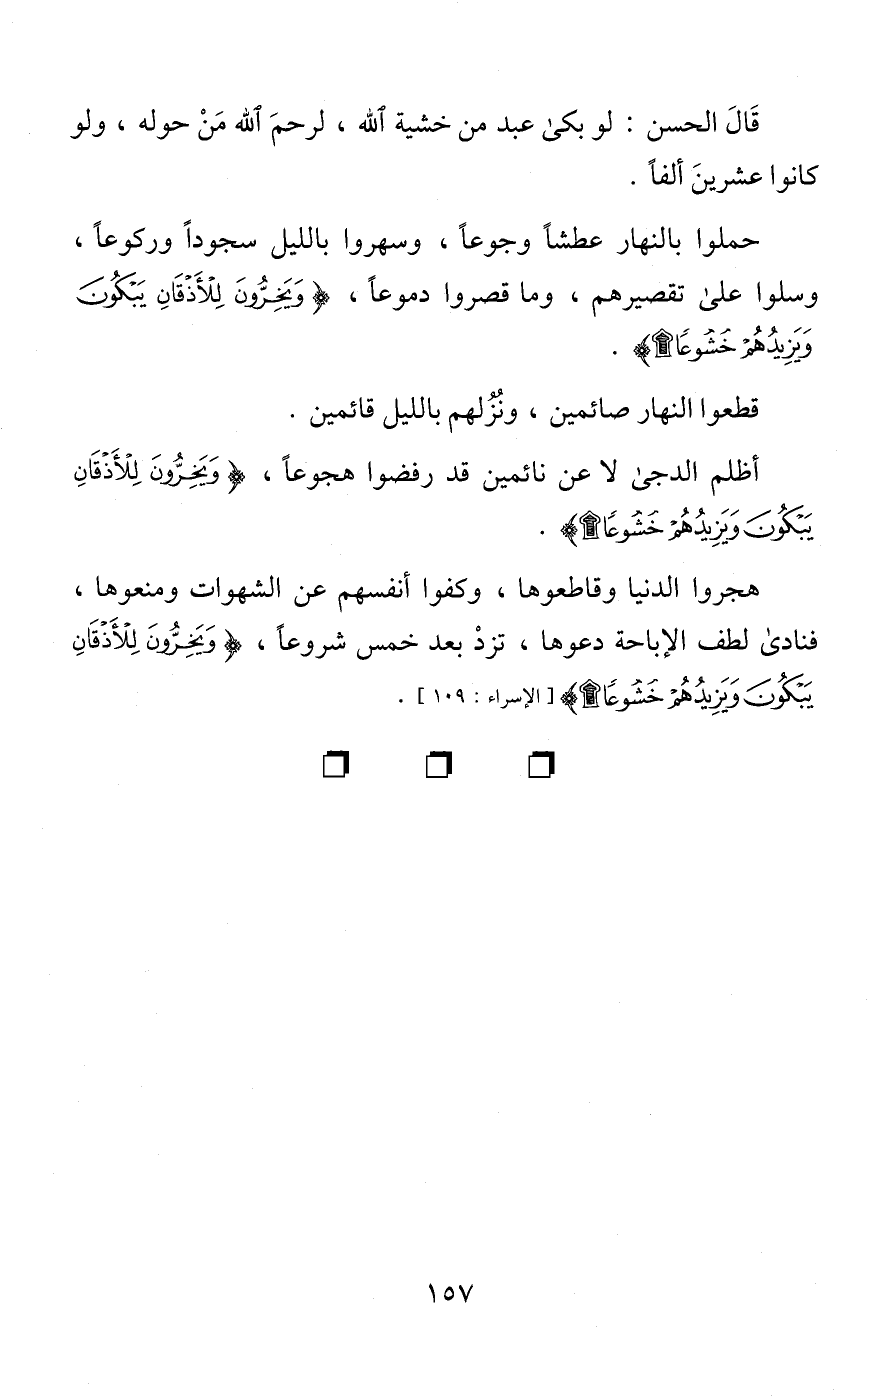 قَالَ الحسن : لو بكىٰ عبد من خشية ٱلله ، لرحمَ ٱلله مَنْ حوله ، ولو
كانوا عشرينَ ألفاً .
حملوا بالنهار عطشاً وجوعاً ، وسهروا بالليل سجوداً وركوعاً ،
وسلوا علىٰ تقصيرهم ، وما قصروا دموعاً ، ﴿ وَيَخِرُّونَ لِلْأَذْقَانِ يَبْكُونَ
وَيَزِيدُهُمْ خُشُوعًا۩﴾ .
قطعوا النهار صائمين ، ونُزُلهم بالليل قائمين .
أظلم الدجىٰ لا عن نائمين قد رفضوا هجوعاً ، ﴿ وَيَخِرُّونَ لِلْأَذْقَانِ
يَبْكُونَ وَيَزِيدُهُمْ خُشُوعًا۩﴾ .
هجروا الدنيا وقاطعوها ، وكفوا أنفسهم عن الشهوات ومنعوها ،
فنادىٰ لطف الإباحة دعوها ، تزدْ بعد خمس شروعاً ، ﴿ وَيَخِرُّونَ لِلْأَذْقَانِ
يَبْكُونَ وَيَزِيدُهُمْ خُشُوعًا۩﴾ [ الإسراء : ١٠٩ ] .
١٥٧